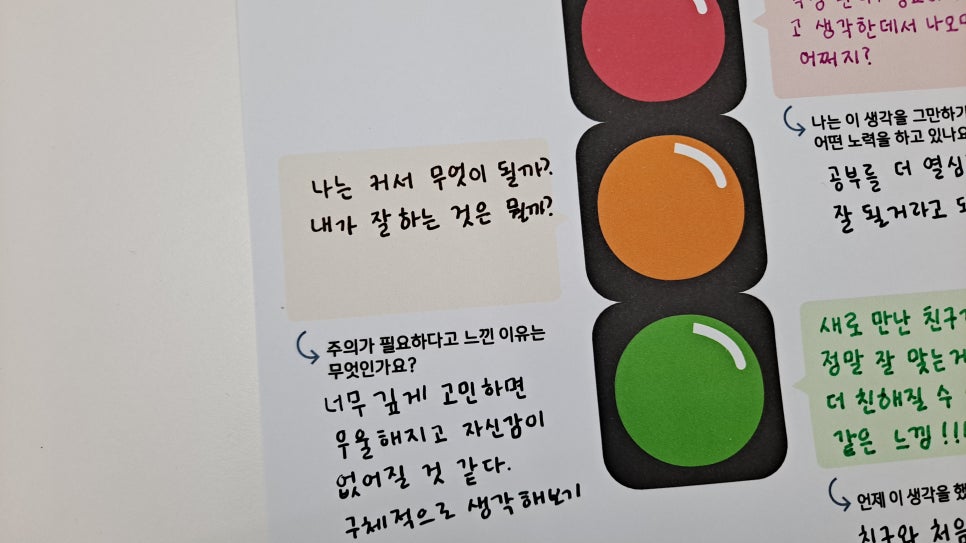 고 생각한데서 나오다
어쩌지?
나는 이 생각을 그만하기
어떤 노력을 하고 있나요
공부를 더 열심
잘 될거라고
나는 커서 무엇이 될까?
내가 잘 하는 것은 뭘까?
주의가 필요하다고 느낀 이유는
무엇인가요?
너무 깊게 고민하면
우울해지고 자신감이
없어질 것 같다.
구체적으로 생각해보기
새로 만난 친구가
정말 잘 맞는게
더 친해질 수
같은 느낌!!!
언제 이 생각을 했
친구와 처음